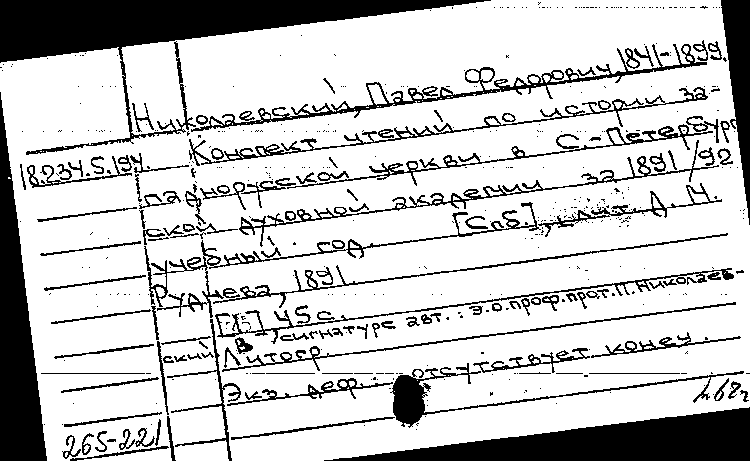 Николаевский, Павел Федорович, 1841-1899.
18.234.5.194. Конспект чтений по истории за-
паднорусской церкви в С.-Петербург
ской духовной академии за 1891/92
учебный год. [Спб.], лит. Д. М.
Руднева, 1891.
[1], 45 с.
В сигнатуре авт.: Э.о.проф.прот.П.Николаев-
ский Литогр.
Экз. деф.: отсутствует конец.
265-221